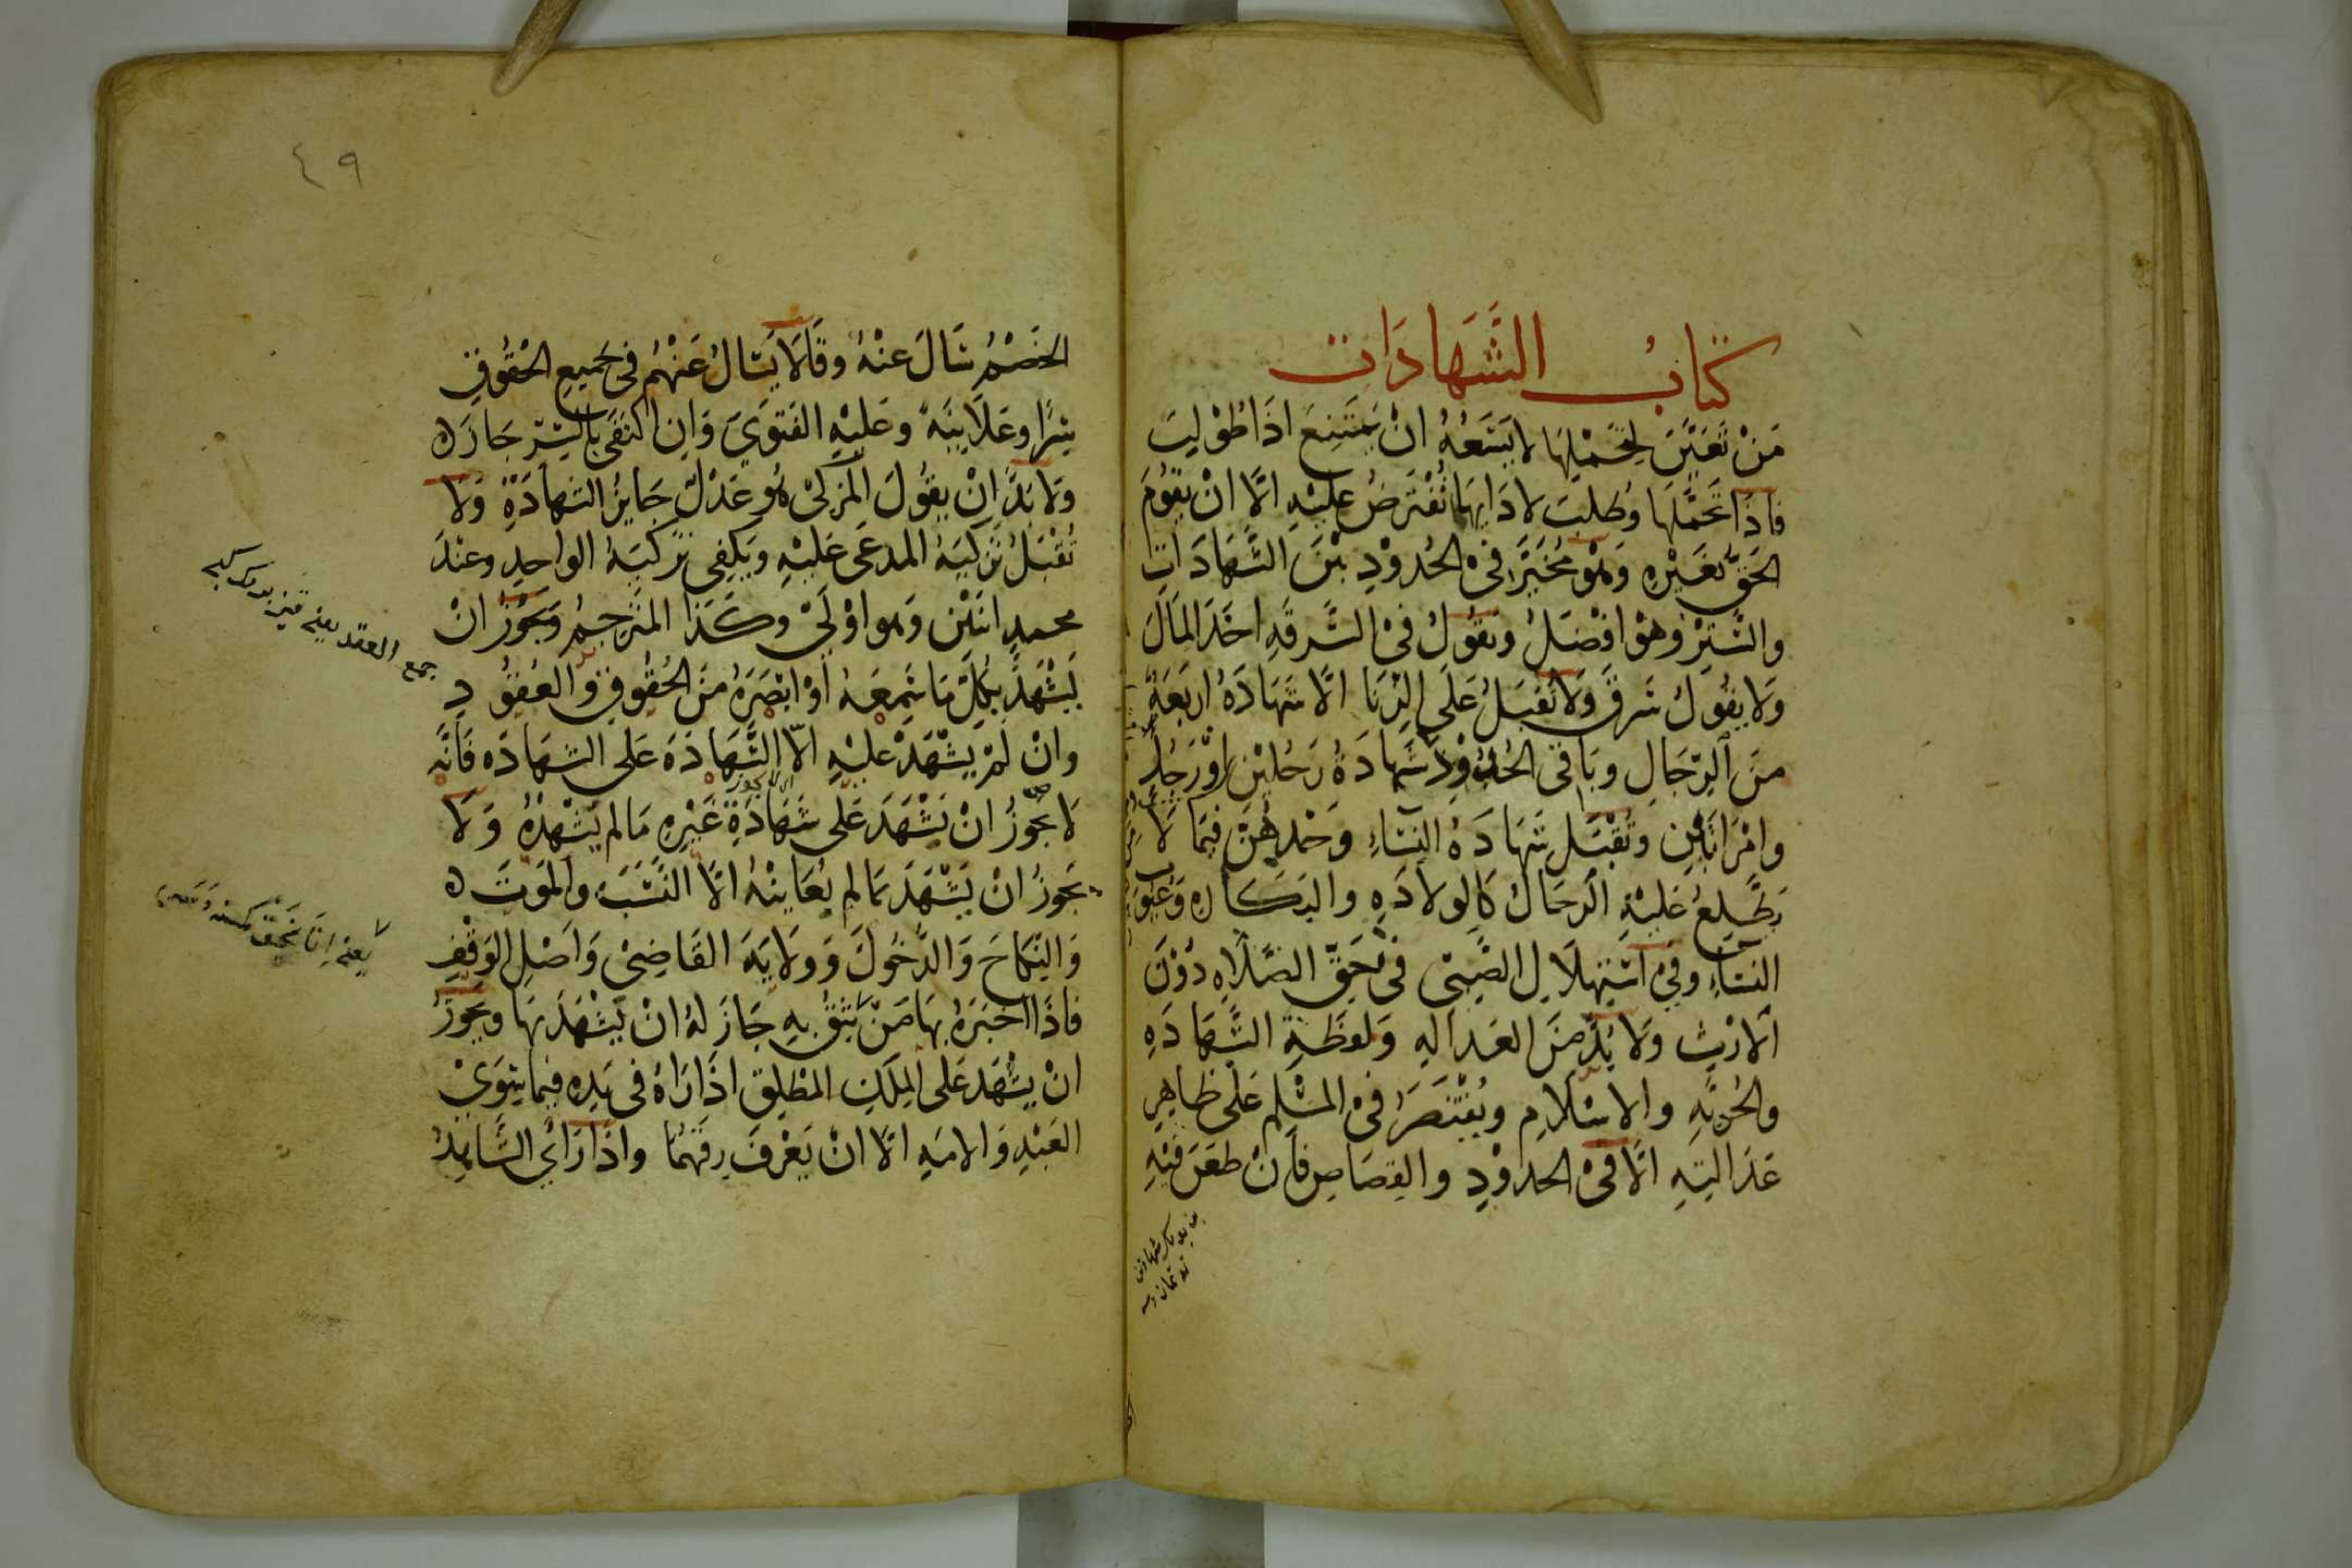 كتاب الشهادات
مَنْ تَعَيَّنَ لِتَحَمُّلِهَا لا يَسَعُهُ انْ يَمْتَنِعَ اذَا طُوْلِبَ
فاذَا تَحَمَّلَهَا وَطُلِبَ لادَايِهَا تُفْتَرَضُ عليْهِ الَّا انْ يَقُومَ
الحَقُّ بغَيْرِهِ وَهْوَ مُخَيَّرٌ فى الحُدُوْدِ بيْنَ الشَّهَادَاتِ
والسَّتْرِ وهْوَ افْضَلُ ويَقُوْلُ فىْ السَّرقَهِ اخَذَ المَالَ
وَلا يقُوْلُ سَرقَ وَلَا تُقْبَلُ عَلَى الزِنَا الَّا شَهَادَةُ ارْبَعَةٍ
مِنَ الرِّجَالِ وبَاقى الحُدُوْدِ شَهَادَةُ رَجُلَيْنِ اوْرَجُلٍ
وامْرَاتَيْنِ وتُقْبَلُ شَهَادَةُ النِّسَاءِ وَحْدهُنَّ فِيمَا لَا
يَطَّلِعُ عَليْهِ الرّجَالُ كَالولَادَهِ والبَكَارهِ وَعُيُوبِ
النِّسَاءِ وفىْ اسْتِهْلَالِ الصَّبِىِّ فىْ حَقِّ الصَّلَاهِ دُوْنَ
الارْثِ وَلا بُدَّ مِنَ العَدالهِ وَلفظَةِ الشَّهَادَهِ
والحُريَّهِ والاسْلَامِ ويُقْتَصَرُ فىْ المُسْلِمِ عَلَى ظاهِرِ
عَدَالتِهِ الَّا فىْ الحدُوْدِ والقِصَاصِ فَانْ طعَنَ فيْهِ
٤٩
الخَصْمُ سَالَ عنْهُ وقَالَا يَسْالُ عَنْهُم فى جَمِيعِ الحُقُوقِ
سِرًّا وعَلَانِيَةً وعَليْهِ الفَتوَىَ وَانِ اكتَفَى بالسِّرِّ جَازَ ه
وَلَا بُدَّ انْ يقُولَ المُزكىْ هُوَ عَدْلٌ جَايِزُ الشهَادَةِ وَلَا
تُقْبَلُ تَزكِيَهُ المدعَى عَليْهِ ويَكفِى تزكيَهُ الواحِدِ وعنْدَ
محمدٍ اثنَيْنِ وَهوَ اوْلَىْ وكَذَا المُتَرْجِمُ ويَجُوْزُ انْ
يَشْهَدَ بِكُلِّ مَا سَمِعَهُ اوْ ابْصَرَهُ مِنَ الحُقُوقِ والعُقُودِ
وانْ لَمْ يشْهَدْ عليْهِ الّا الشَّهَادَهَ عَلَى الشهَادَه فَانَّه
لَا يَجُوزُ انْ يَشْهَدَ عَلى شَهَادَةِ غَيْرِهِ مَا لم يَشْهِدْهُ وَلَا
يَجوزُ انْ يَشْهَدَ بمَا لم يُعَاينْهُ الَّا النَّسَبَ والمَوتَ ه
وَالنِّكَاحَ وَالدُّخُولَ وَولَايَهَ القَاضِىْ وَاصْلِ الوَقْفِ
فاذَا اخبَرَهُ بهَا مَنْ يَثِقُ بهِ جَازَ لهُ انْ يَشْهَدَ بهَا ويَجُوزُ
انْ يشْهَدَ عَلى المِلكِ المطْلقِ اذَا رَاهُ فى يَدِهِ فيمَا سِوَىْ
العَبْدِ وَالامَهِ الَّا انْ يَعْرفَ رقَّهُمَا واذَا رَاىَ الشَّاهِدُ
جمع العقد يعنى